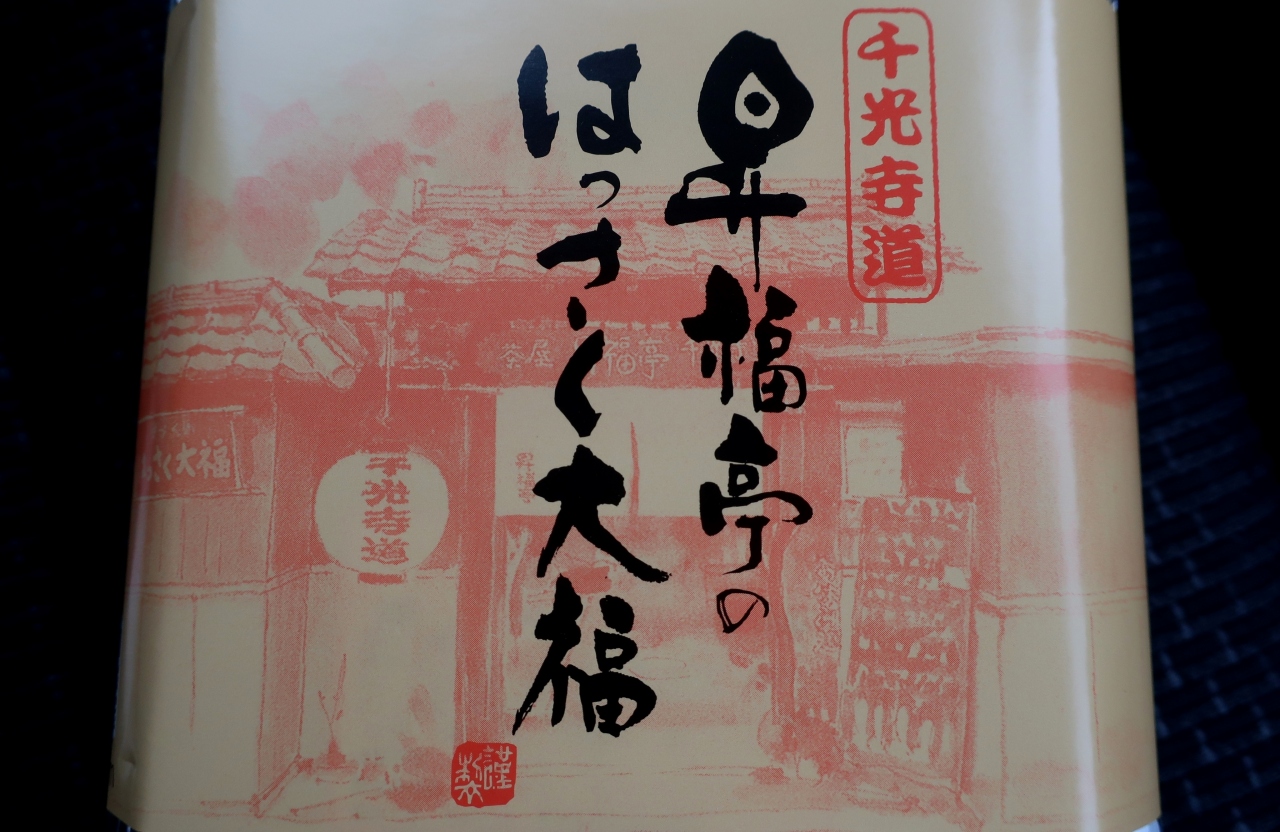 千光寺道
昇福亭の
はっさく大福
茶屋 福亭 千
さく大福
千光寺道
昇福亭
謹製